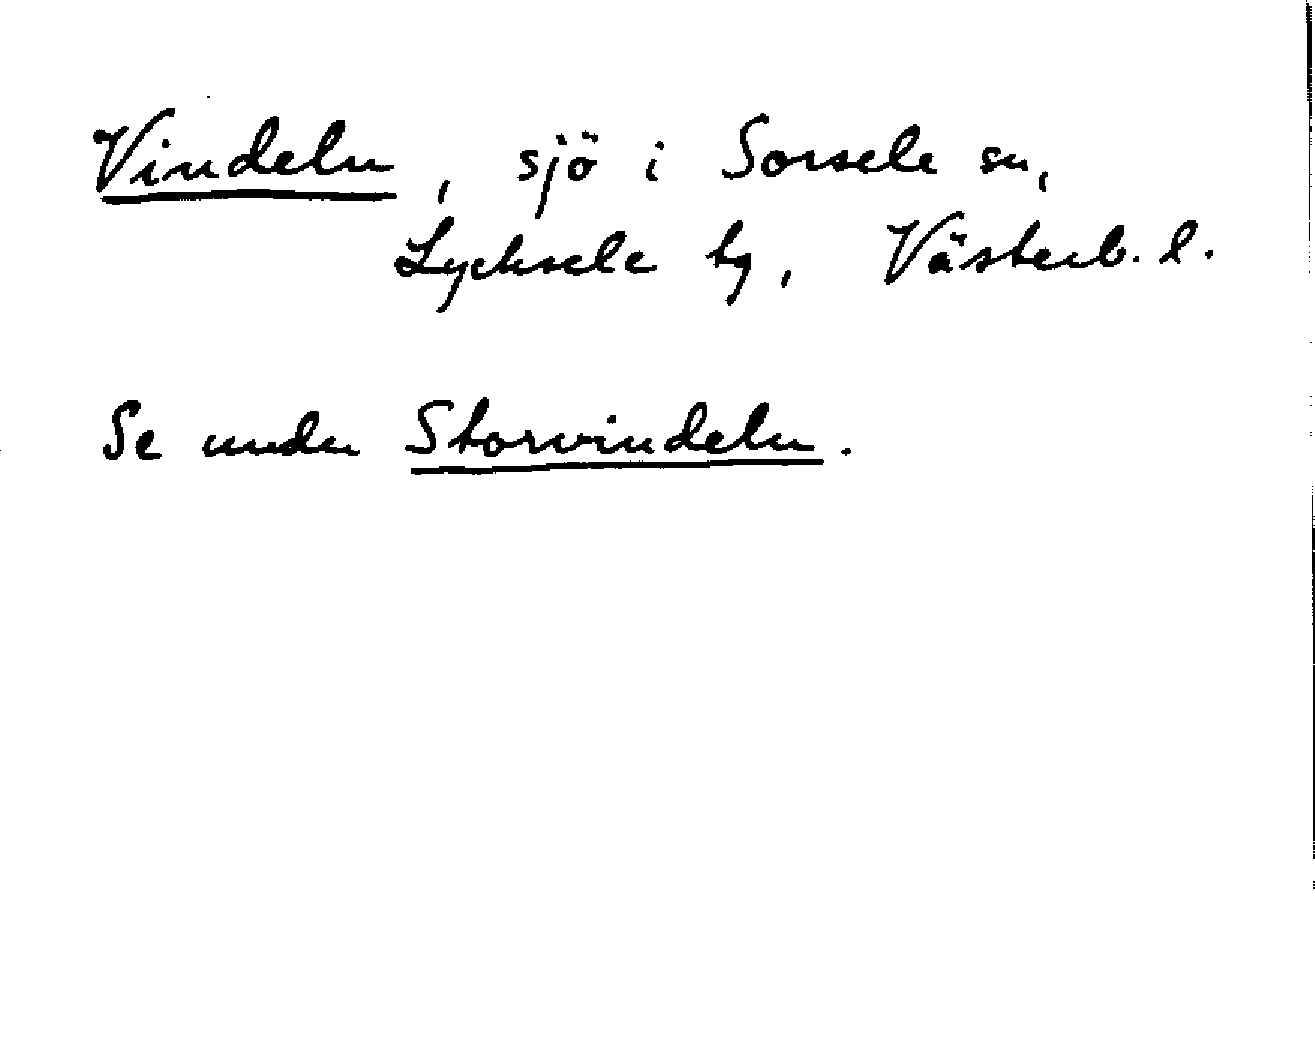 Vindeln, sjö i Sorsele sn,
Lycksele tg, Västerb. l.
Se under Storvindeln.